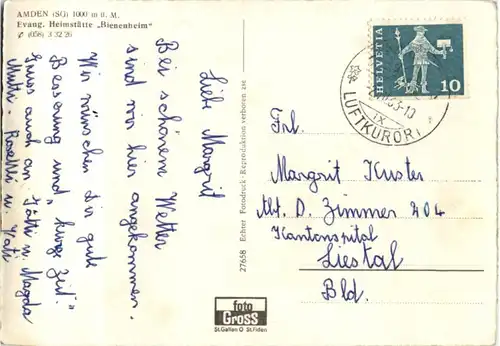 AMDEN (SG) 1000 m ü. M.
Evang. Heimstätte „Bienenheim"
✆ (058) 3 32 26
Liebe Margrit
Bei schönem Wetter
sind wir hier angekommen.
Wir wünschen Dir gute
Besserung und „kurze Zeit".
Gruss auch an Götti u. Magda
Mutti - Roselli u. Kati
27658 Echter Fotodruck - Reproduktion verboten
foto
Gross
St.Gallen O St.Fiden
HELVETIA
10
LUFTKURORT
IX
Frl.
Margrit Kuster
Abt. D. Zimmer 204
Kantonspital
Liestal
Bld.